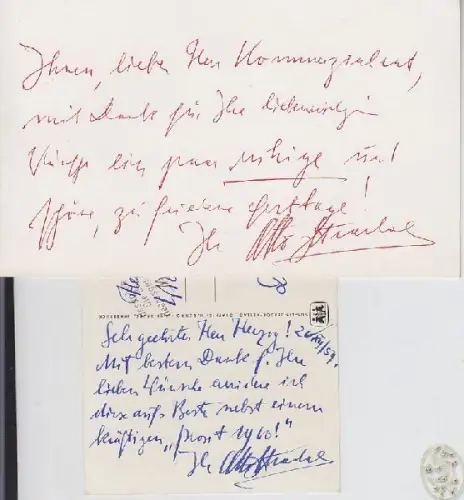 Ihnen, lieber Herr Kommerzialrat,
mit Dank für Ihre liebenswürdigen
Wünsche ein paar ruhige und
schöne, zufriedene Festtage!
Ihr Otto
Sehr geehrter Herr Herzog! 20/XII/59.
Mit bestem Dank f. Ihre
lieben Wünsche erwidere ich
diese aufs Beste nebst einem
kräftigen „Prosit 1960!"
Ihr Otto